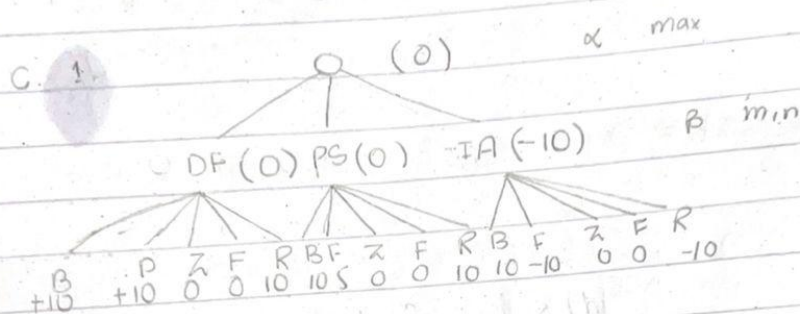 C. 1. (0) α max
DF (0) PS (0) IA (-10) β min
B P Z F R B F Z F R B F Z F R
+10 +10 0 0 10 10 5 0 0 10 10 -10 0 0 -10